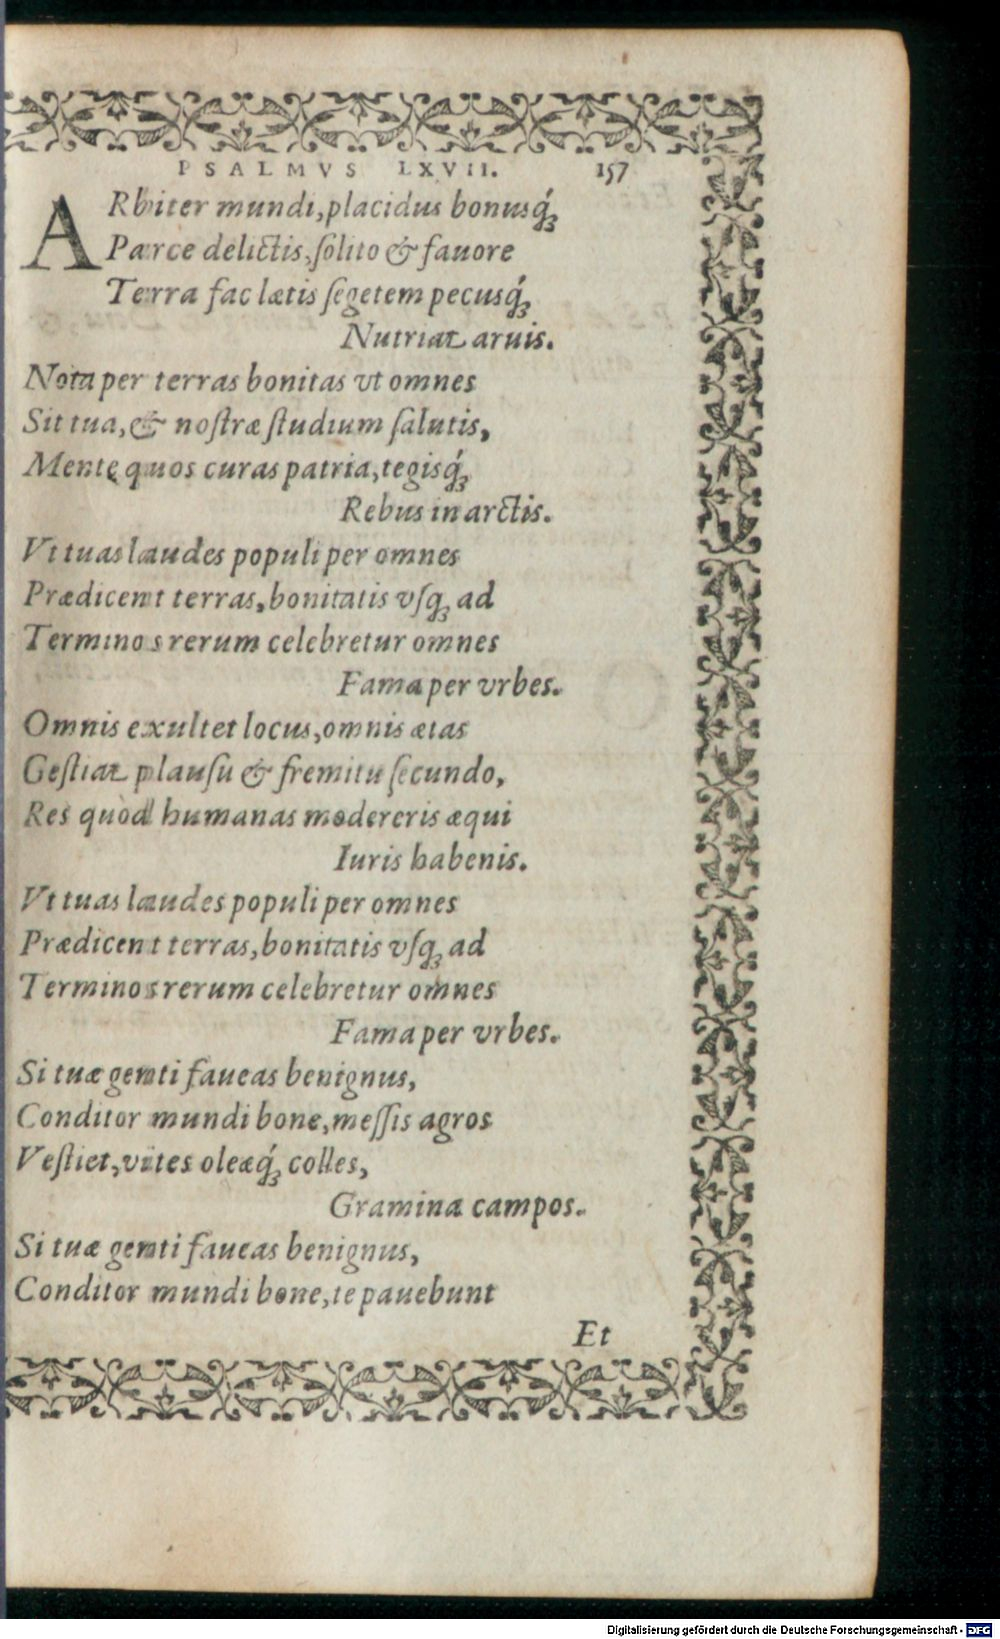 PSALMVS LXVII. 157
ARbiter mundi, placidus bonusq́ꝫ
Parce delictis, ſolito & fauore
Terra fac lætis ſegetem pecusq́ꝫ
Nutriat aruis.
Nota per terras bonitas vt omnes
Sit tua, & noſtræ ſtudium ſalutis,
Mente quos curas patria, tegisq́ꝫ
Rebus in arctis.
Vt tuas laudes populi per omnes
Prædicent terras, bonitatis vſqꝫ ad
Terminos rerum celebretur omnes
Fama per vrbes.
Omnis exultet locus, omnis ætas
Geſtiat plauſu & fremitu ſecundo,
Res quòd humanas modereris æqui
Iuris habenis.
Vt tuas laudes populi per omnes
Prædicent terras, bonitatis vſqꝫ ad
Terminos rerum celebretur omnes
Fama per vrbes.
Si tuæ genti faueas benignus,
Conditor mundi bone, meſſis agros
Veſtiet, vites oleæq́ꝫ colles,
Gramina campos.
Si tuæ genti faueas benignus,
Conditor mundi bone, te pauebunt
Et
Digitalisierung gefördert durch die Deutsche Forschungsgemeinschaft - DFG